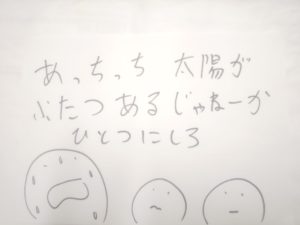 あっちっち 太陽が
ふたつあるじゃねーか
ひとつにしろ